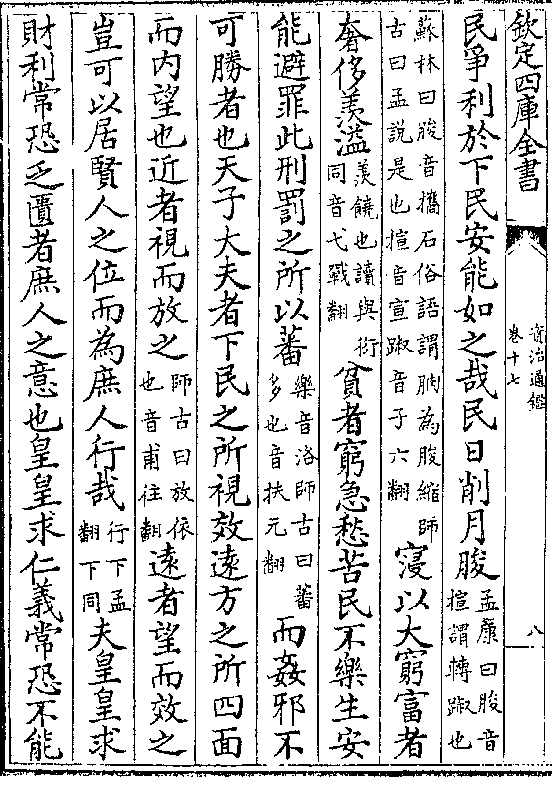 欽定四庫全書
資治通鑑
卷十七
八
民爭利於下民安能如之哉民日削月朘孟康曰朘音揎謂轉踧也
蘇林曰朘音攜石俗語謂朒為朘縮師古曰孟說是也揎音宣踧音子六翻寖以大窮富者
奢侈羨溢羨饒也讀與衍同音弋戰翻貧者窮急愁苦民不樂生安
能避罪此刑罰之所以蕃樂音洛師古曰蕃多也音扶元翻而姦邪不
可勝者也天子大夫者下民之所視效遠方之所四面
而內望也近者視而放之師古曰放依也音甫往翻遠者望而效之
豈可以居賢人之位而為庶人行哉行下孟翻下同夫皇皇求
財利常恐乏匱者庶人之意也皇皇求仁義常恐不能